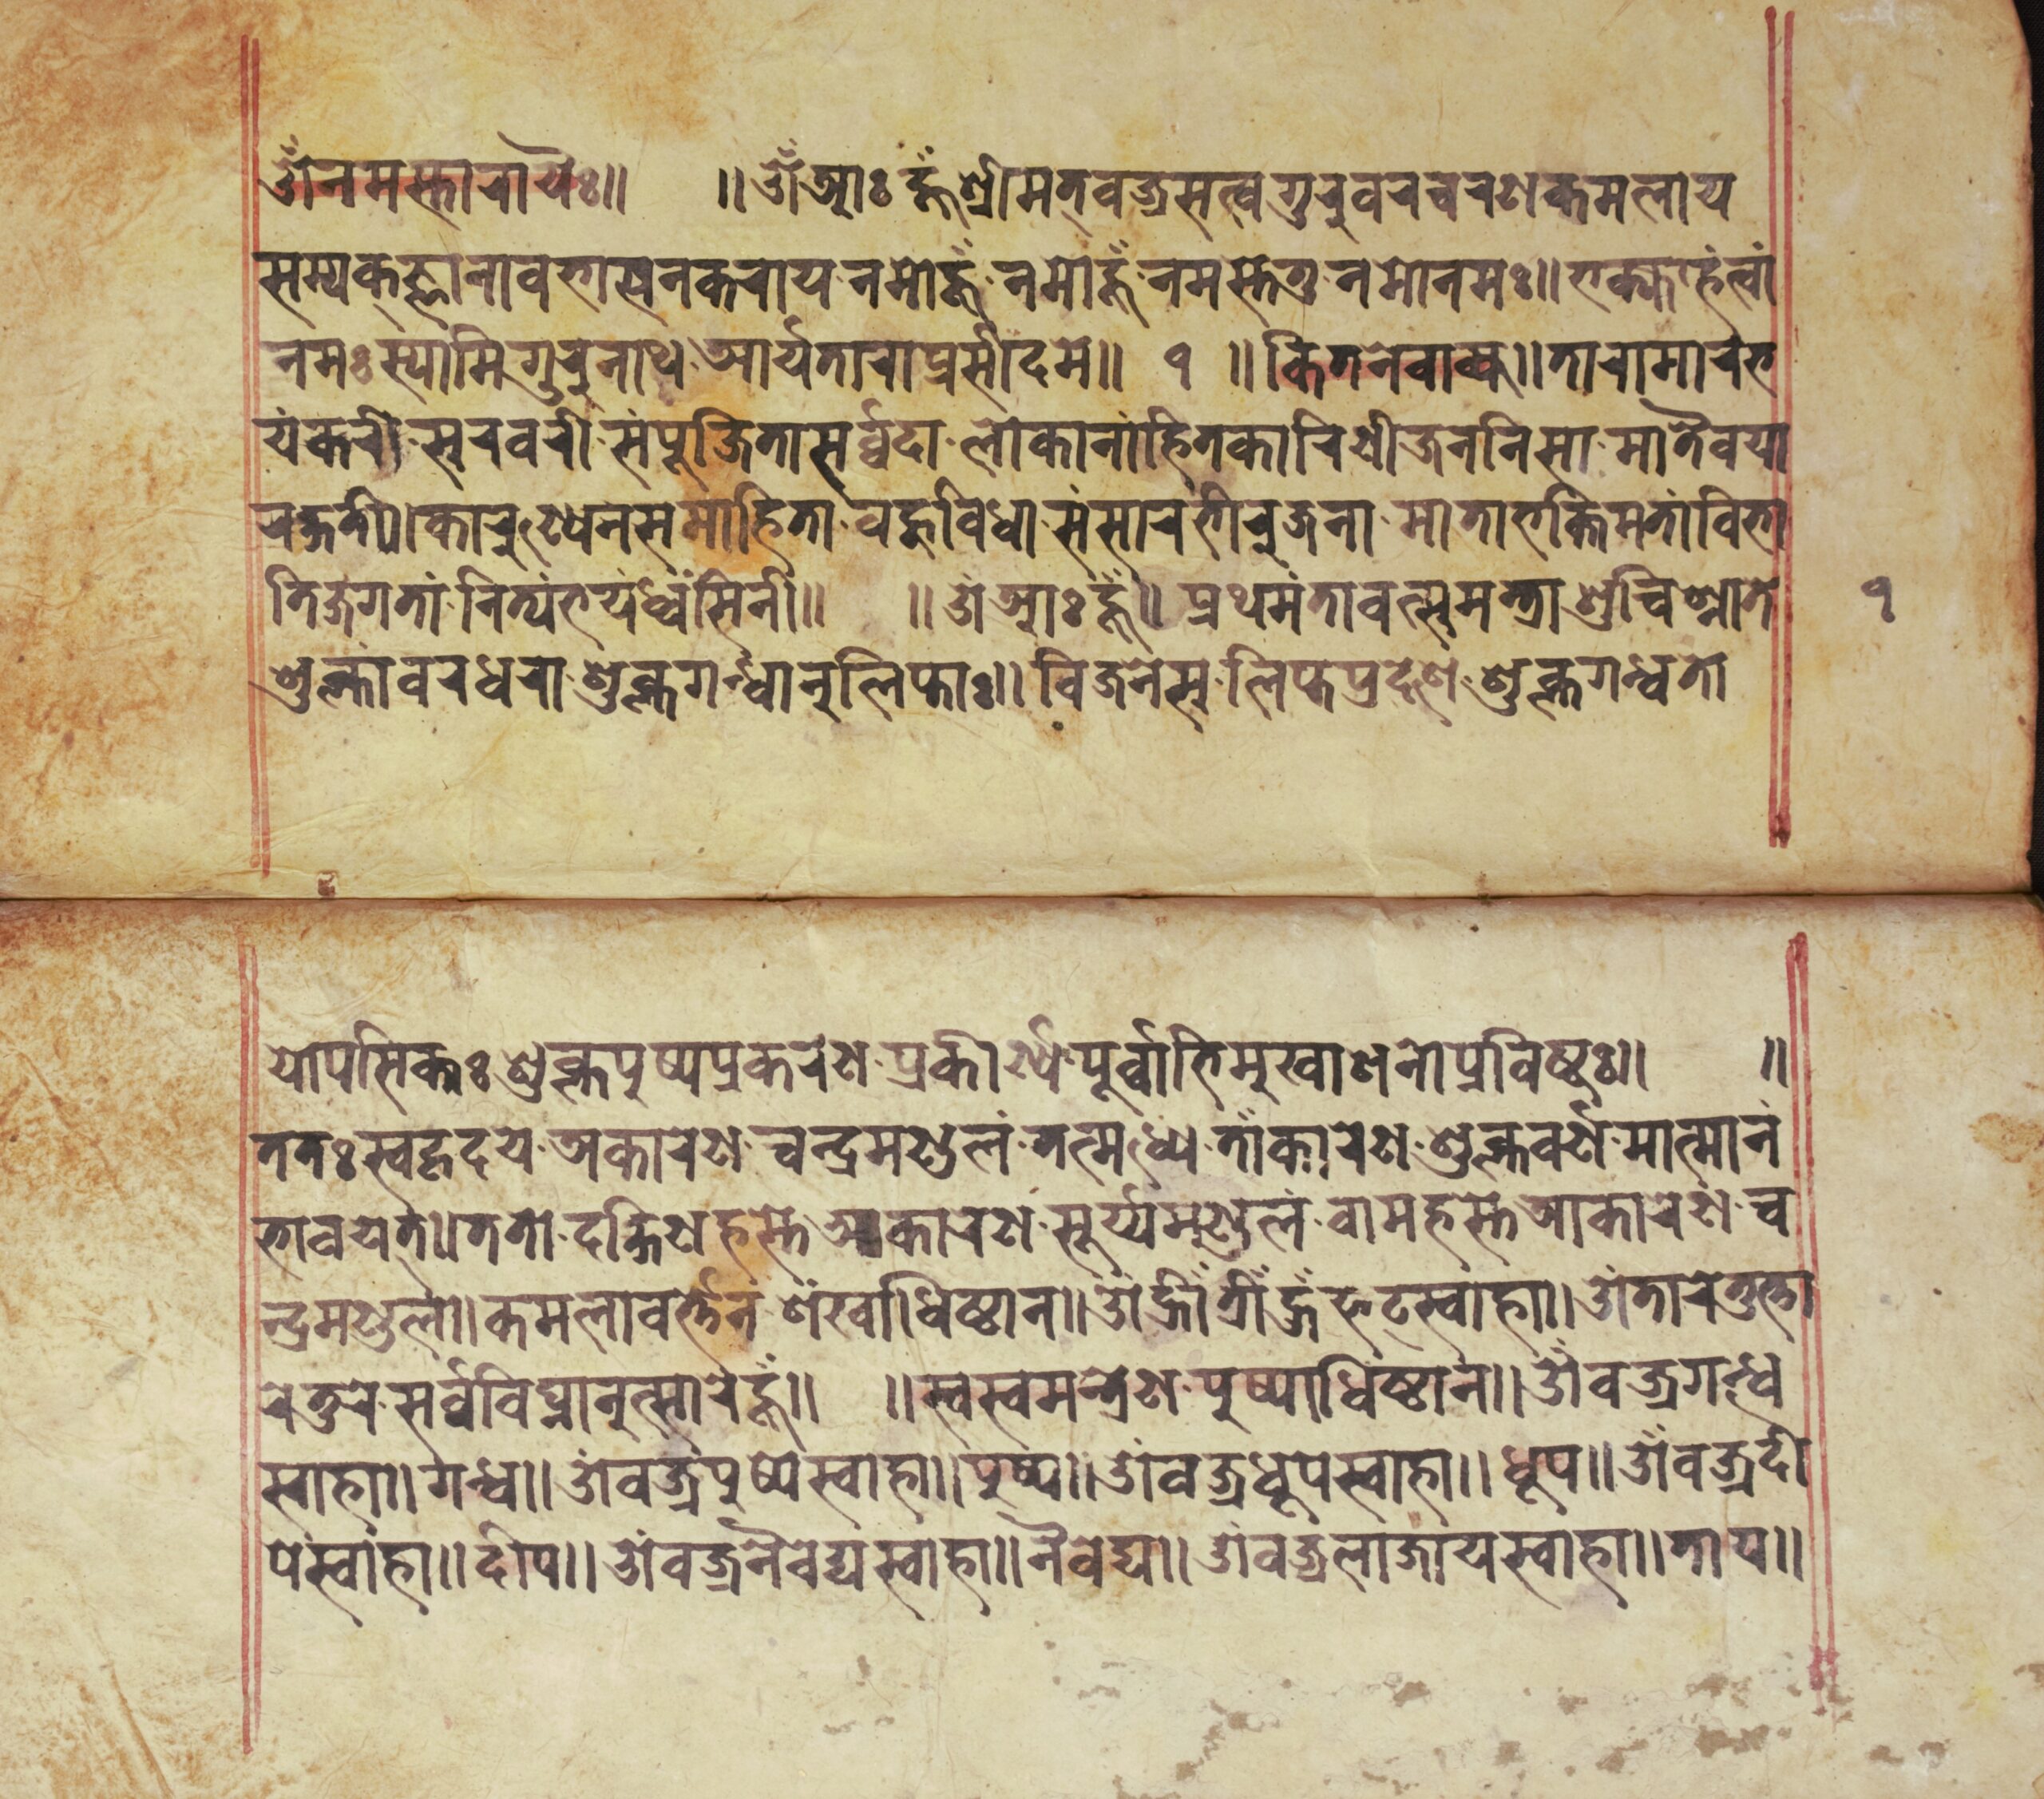 ॐ नमस्तारायैः॥ ॥ॐ आः ह्रूँ श्रीमत्वज्रसत्वगुरुवरचरणकमलाय
सम्यक्ज्ञानावभास्यनकराय नमोहूँ नमोहूँ नमस्तेतु नमोनमः॥ भक्त्याहंत्वां
नमःस्यामि गुरुनाथ आर्यतारा प्रसीदमे॥ १ ॥ तारामारभ
यंकरी सुरवरी संपूजितासर्व्वदा लोकानांहितकारिणी जननिसा मातैवया
रक्षती॥ कारुण्येनसमाहिता वहूविधा संसारभीरुजना माताभक्तिमतां विभा
तिजगतां नित्यंभयंध्वंसिनी॥ ॥ॐ आः हूँ॥ प्रथमंतावत्सुमन्त्रा शुचिश्नाते १
शुक्लांवरधरा शुक्लगर्न्धानुलिप्ताः॥ विजनेसुलिप्तप्रदेशे शुक्लगन्धतो
योपसिक्तः शुक्लपुष्पप्रकरेण प्रकीर्ण्य पूर्व्वाभिमुखाशनोप्रविष्टः॥ ॥
ततः स्वहृदये अकारेण चन्द्रमण्डलं तत्मध्ये ताँकारेण शुक्लवर्णमात्मानं
भावयेत्॥ ततो दक्षिणहस्ते अकारेण सूर्य्यमण्डलं वामहस्ते आकारेण च
न्द्रमण्डलं॥ कमलावर्त्तेन शंखाधिष्ठान॥ ॐ ह्रीँ त्रीँ हूँ फट्स्वाहा॥ ॐ तारेतुत्ता
रेतुरे सर्व्वविघ्नानुत्सारेहूँ॥ ॥स्वस्वमन्त्रेण पुष्पाधिष्ठान॥ ॐ वज्रगन्ध
स्वाहा॥ गन्ध॥ ॐ वज्रपुष्पेस्वाहा॥ पुष्प॥ ॐ वज्रधूपेस्वाहा॥ धूप॥ ॐ वज्रदी
पेस्वाहा॥ दीप॥ ॐ वज्रनैवेद्यस्वाहा॥ नैवेद्य॥ ॐ वज्रलाजायस्वाहा॥ ताय॥